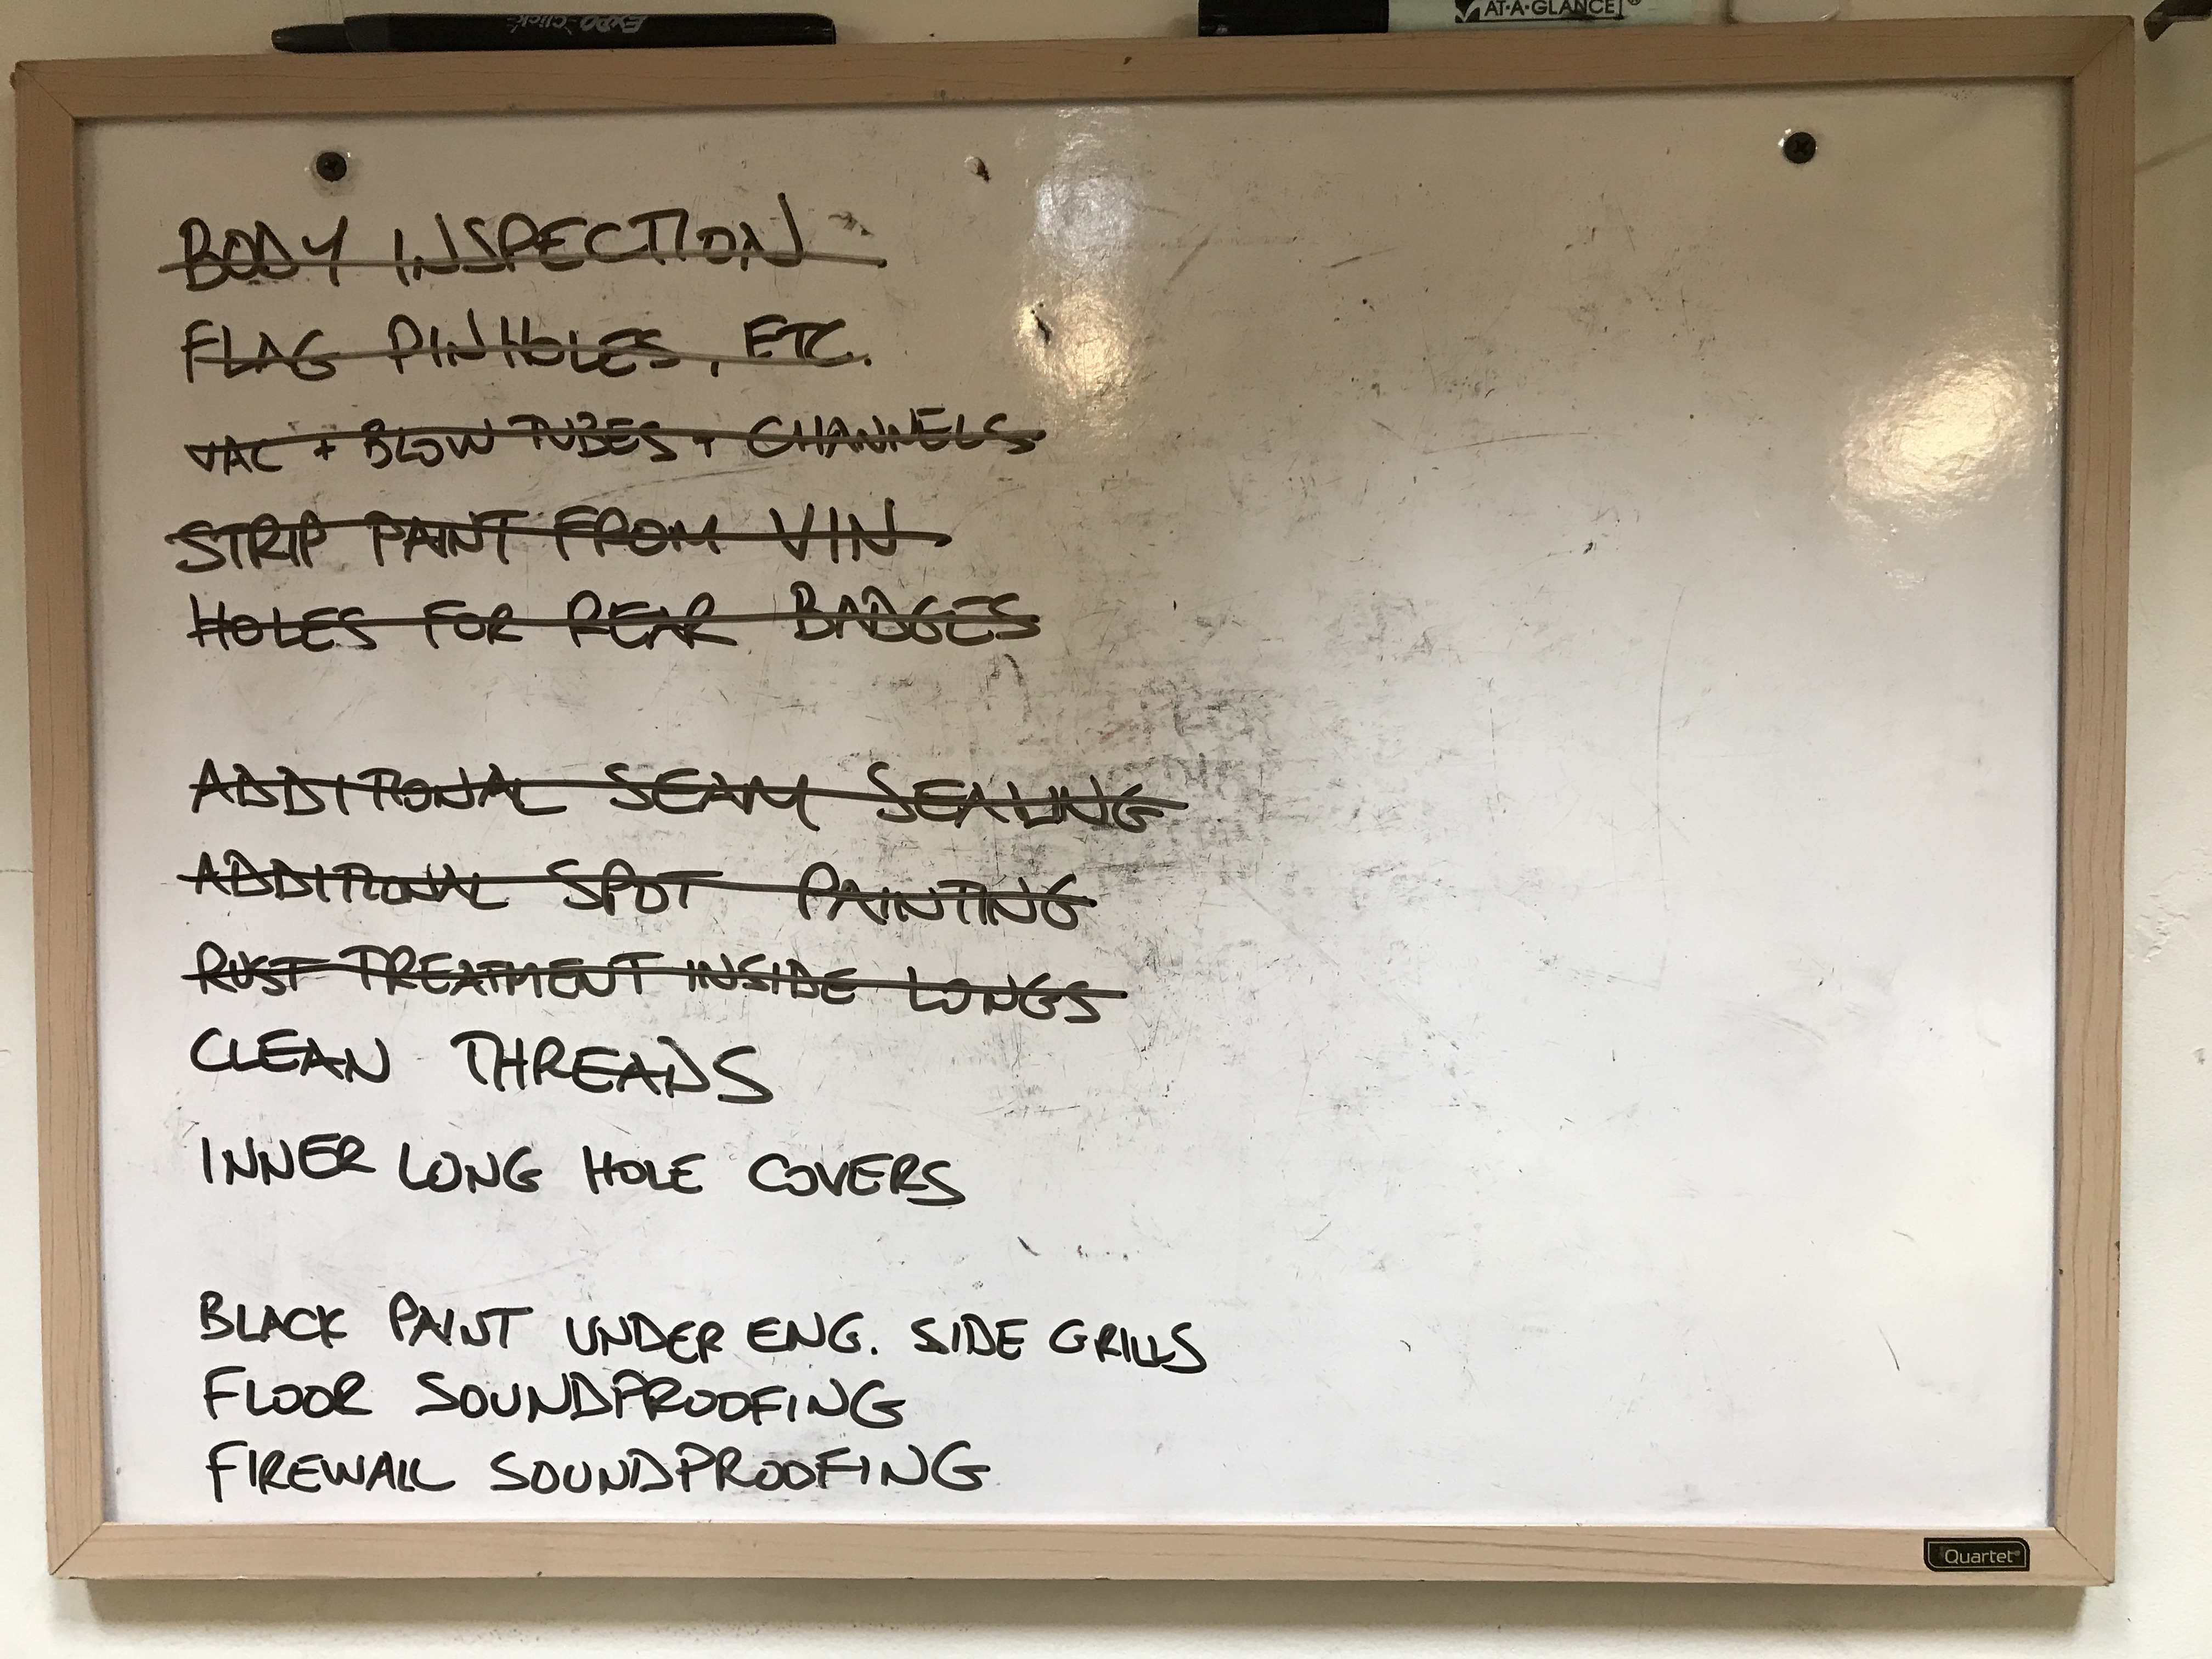 Expo Click
AT-A-GLANCE®
BODY INSPECTION
FLAG PINHOLES, ETC.
VAC + BLOW TUBES + CHANNELS
STRIP PAINT FROM VIN
HOLES FOR REAR BADGES
ADDITIONAL SEAM SEALING
ADDITIONAL SPOT PAINTING
RUST TREATMENT INSIDE LONGS
CLEAN THREADS
INNER LONG HOLE COVERS
BLACK PAINT UNDER ENG. SIDE GRILLS
FLOOR SOUNDPROOFING
FIREWALL SOUNDPROOFING
Quartet